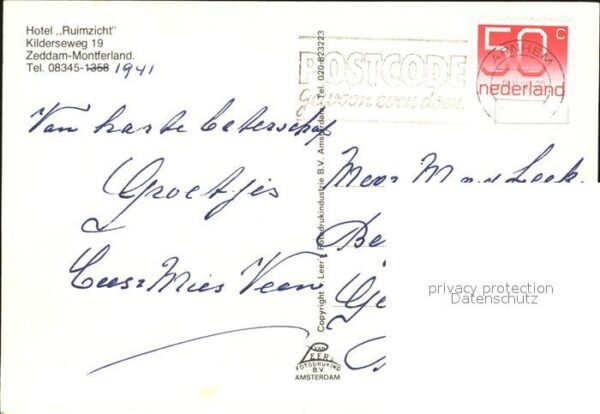 Hotel „Ruimzicht"
Kilderseweg 19
Zeddam-Montferland.
Tel. 08345-1358 1941
Van harte beterschap
Groetjes
Cees & Mies Veen
Copyright v. Leer's Fotodrukindustrie B.V. Amsterdam Tel. 020-823223
VAN
LEER'S
FOTODRUKIND
B.V.
AMSTERDAM
POSTCODE
gewoon even doen
ARNHEM
50 C
nederland
Mevr M v.d. Leek
Be
Ge
privacy protection
Datenschutz